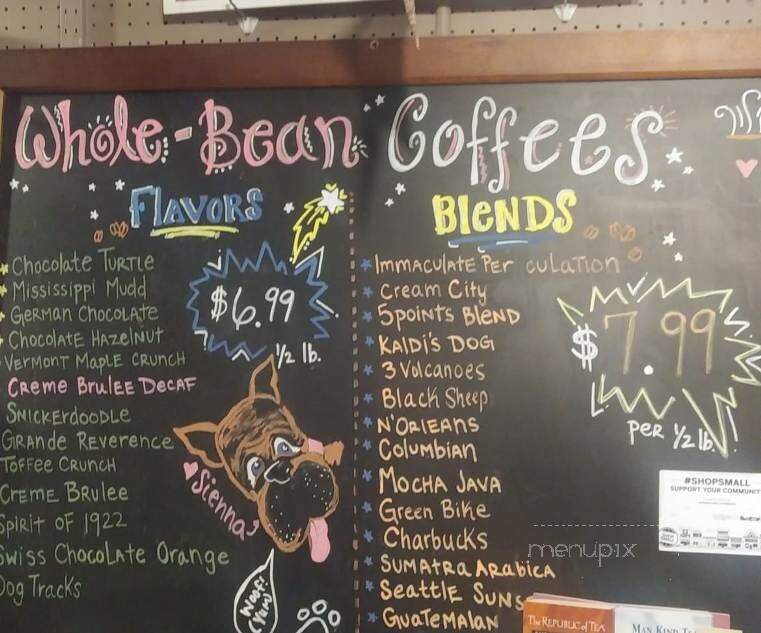 Whole-Bean Coffees
FLAVORS
Chocolate Turtle
Mississippi Mudd
German Chocolate
Chocolate Hazelnut
Vermont Maple Crunch
Creme Brulee Decaf
Snickerdoodle
Grande Reverence
Toffee Crunch
Creme Brulee
Spirit of 1922
Swiss Chocolate Orange
Dog Tracks
$6.99
1/2 lb.
Sienna
Woof!
(Yum)
BLENDS
Immaculate Per culation
Cream City
5points Blend
Kaldi's Dog
3 Volcanoes
Black Sheep
N'Orleans
Columbian
Mocha Java
Green Bike
Charbucks
Sumatra Arabica
Seattle Suns
Guatemalan
$7.99
per 1/2 lb.
#SHOPSMALL
SUPPORT YOUR COMMUNIT
menupix
THE REPUBLIC of TEA
MAN KIND